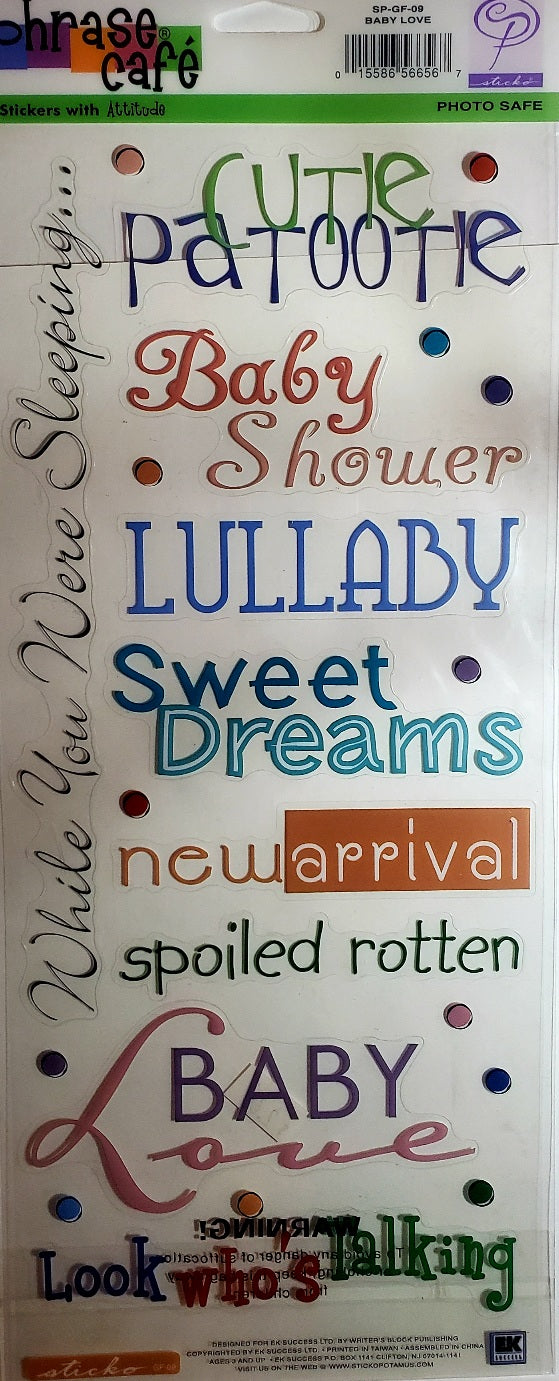 phrase®
café
SP-GF-09
BABY LOVE
0 15586 56656 7
sticko
Stickers with Attitude
PHOTO SAFE
While You Were Sleeping...
CUTIE
PATOOTIE
Baby
Shower
LULLABY
Sweet
Dreams
newarrival
spoiled rotten
BABY
Love
WARNING!
To avoid any danger of suffocation
Look who's Talking
DESIGNED FOR EK SUCCESS LTD. BY WRITER'S BLOCK PUBLISHING
COPYRIGHTED BY EK SUCCESS LTD. • PRINTED IN TAIWAN • ASSEMBLED IN CHINA
AGES 3 AND UP • EK SUCCESS P.O. BOX 1141 CLIFTON, NJ 07014-1141
VISIT US ON THE WEB @ WWW.STICKOPOTAMUS.COM
sticko GF-09
EK
SUCCESS